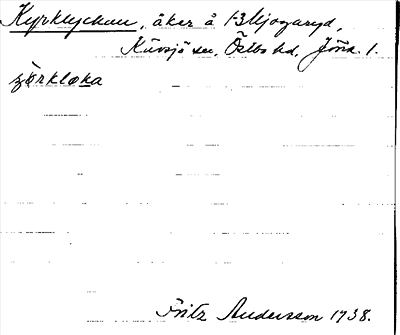 Kyrklyckan, åker å 1-3 Mjogaryd,
Kävsjö sn. Östbo hd. Jönk. l.
Fritz Andersson 1938.